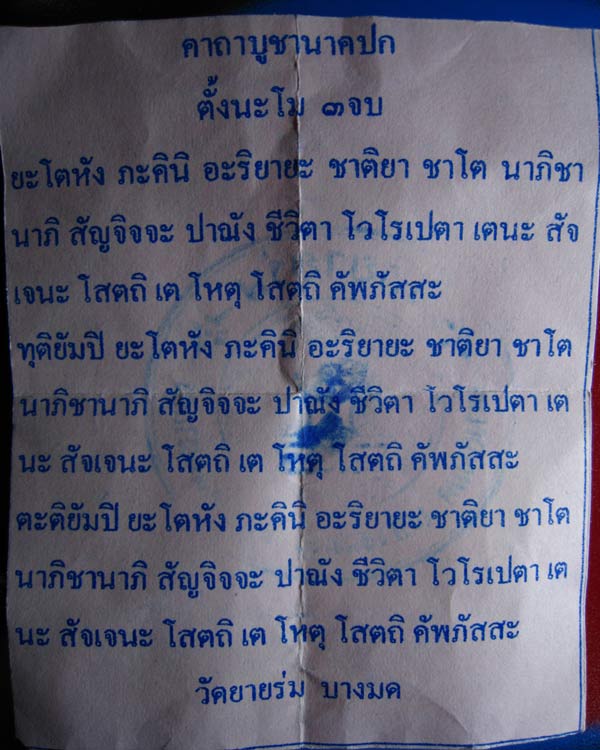 คาถาบูชานาคปก
ตั้งนะโม ๓จบ
ยะโตหัง ภะคินิ อะริยายะ ชาติยา ชาโต นาภิชา
นาภิ สัญจิจจะ ปาณัง ชีวิตา โวโรเปตา เตนะ สัจ
เจนะ โสตถิ เต โหตุ โสตถิ คัพภัสสะ
ทุติยัมปี ยะโตหัง ภะคินิ อะริยายะ ชาติยา ชาโต
นาภิชานาภิ สัญจิจจะ ปาณัง ชีวิตา โวโรเปตา เต
นะ สัจเจนะ โสตถิ เต โหตุ โสตถิ คัพภัสสะ
ตะติยัมปี ยะโตหัง ภะคินิ อะริยายะ ชาติยา ชาโต
นาภิชานาภิ สัญจิจจะ ปาณัง ชีวิตา โวโรเปตา เต
นะ สัจเจนะ โสตถิ เต โหตุ โสตถิ คัพภัสสะ
วัดยายร่ม บางมด